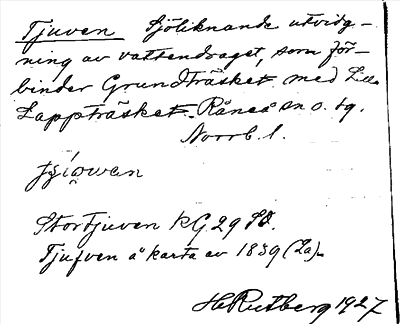 Tjuven sjöliknande utvidg-
ning av vattendraget, som för-
binder Grundträsket med Lilla
Lappträsket. Råneå sn o. tg.
Norrb. l.
Stortjuven KG 29 SO.
Tjufven å karta av 1859 (La).
H. Rutberg 1927